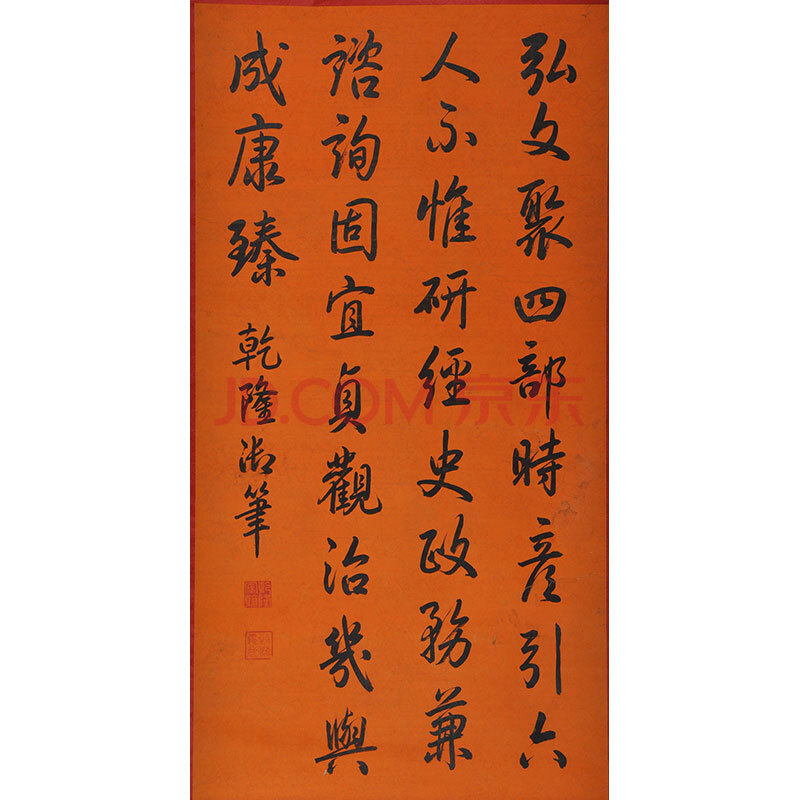 弘文聚四部時彦引六
人不惟研經史政務兼
諮詢固宜貞觀治幾與
成康臻
乾隆御筆
JD.COM 京东